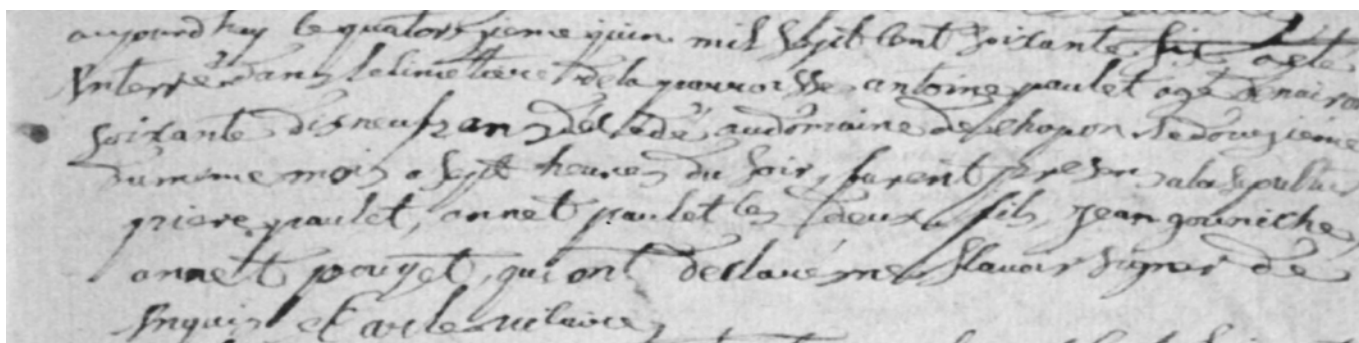 aujourdhuy le quatorzieme juin mil sept cent soixante six a ete
enterré dans le cimetiere de la parroisse antoine paulet agé denviron
soixante dis neufz ans decedé au domaine de chapon le douzieme
du meme mois a sept heures du soir, furent presens a la sepulture
piere paulet, annet paulet ses deux fils, jean gouniche
annet pouyet, qui ont declaré ne scavoir signer de
enquis et